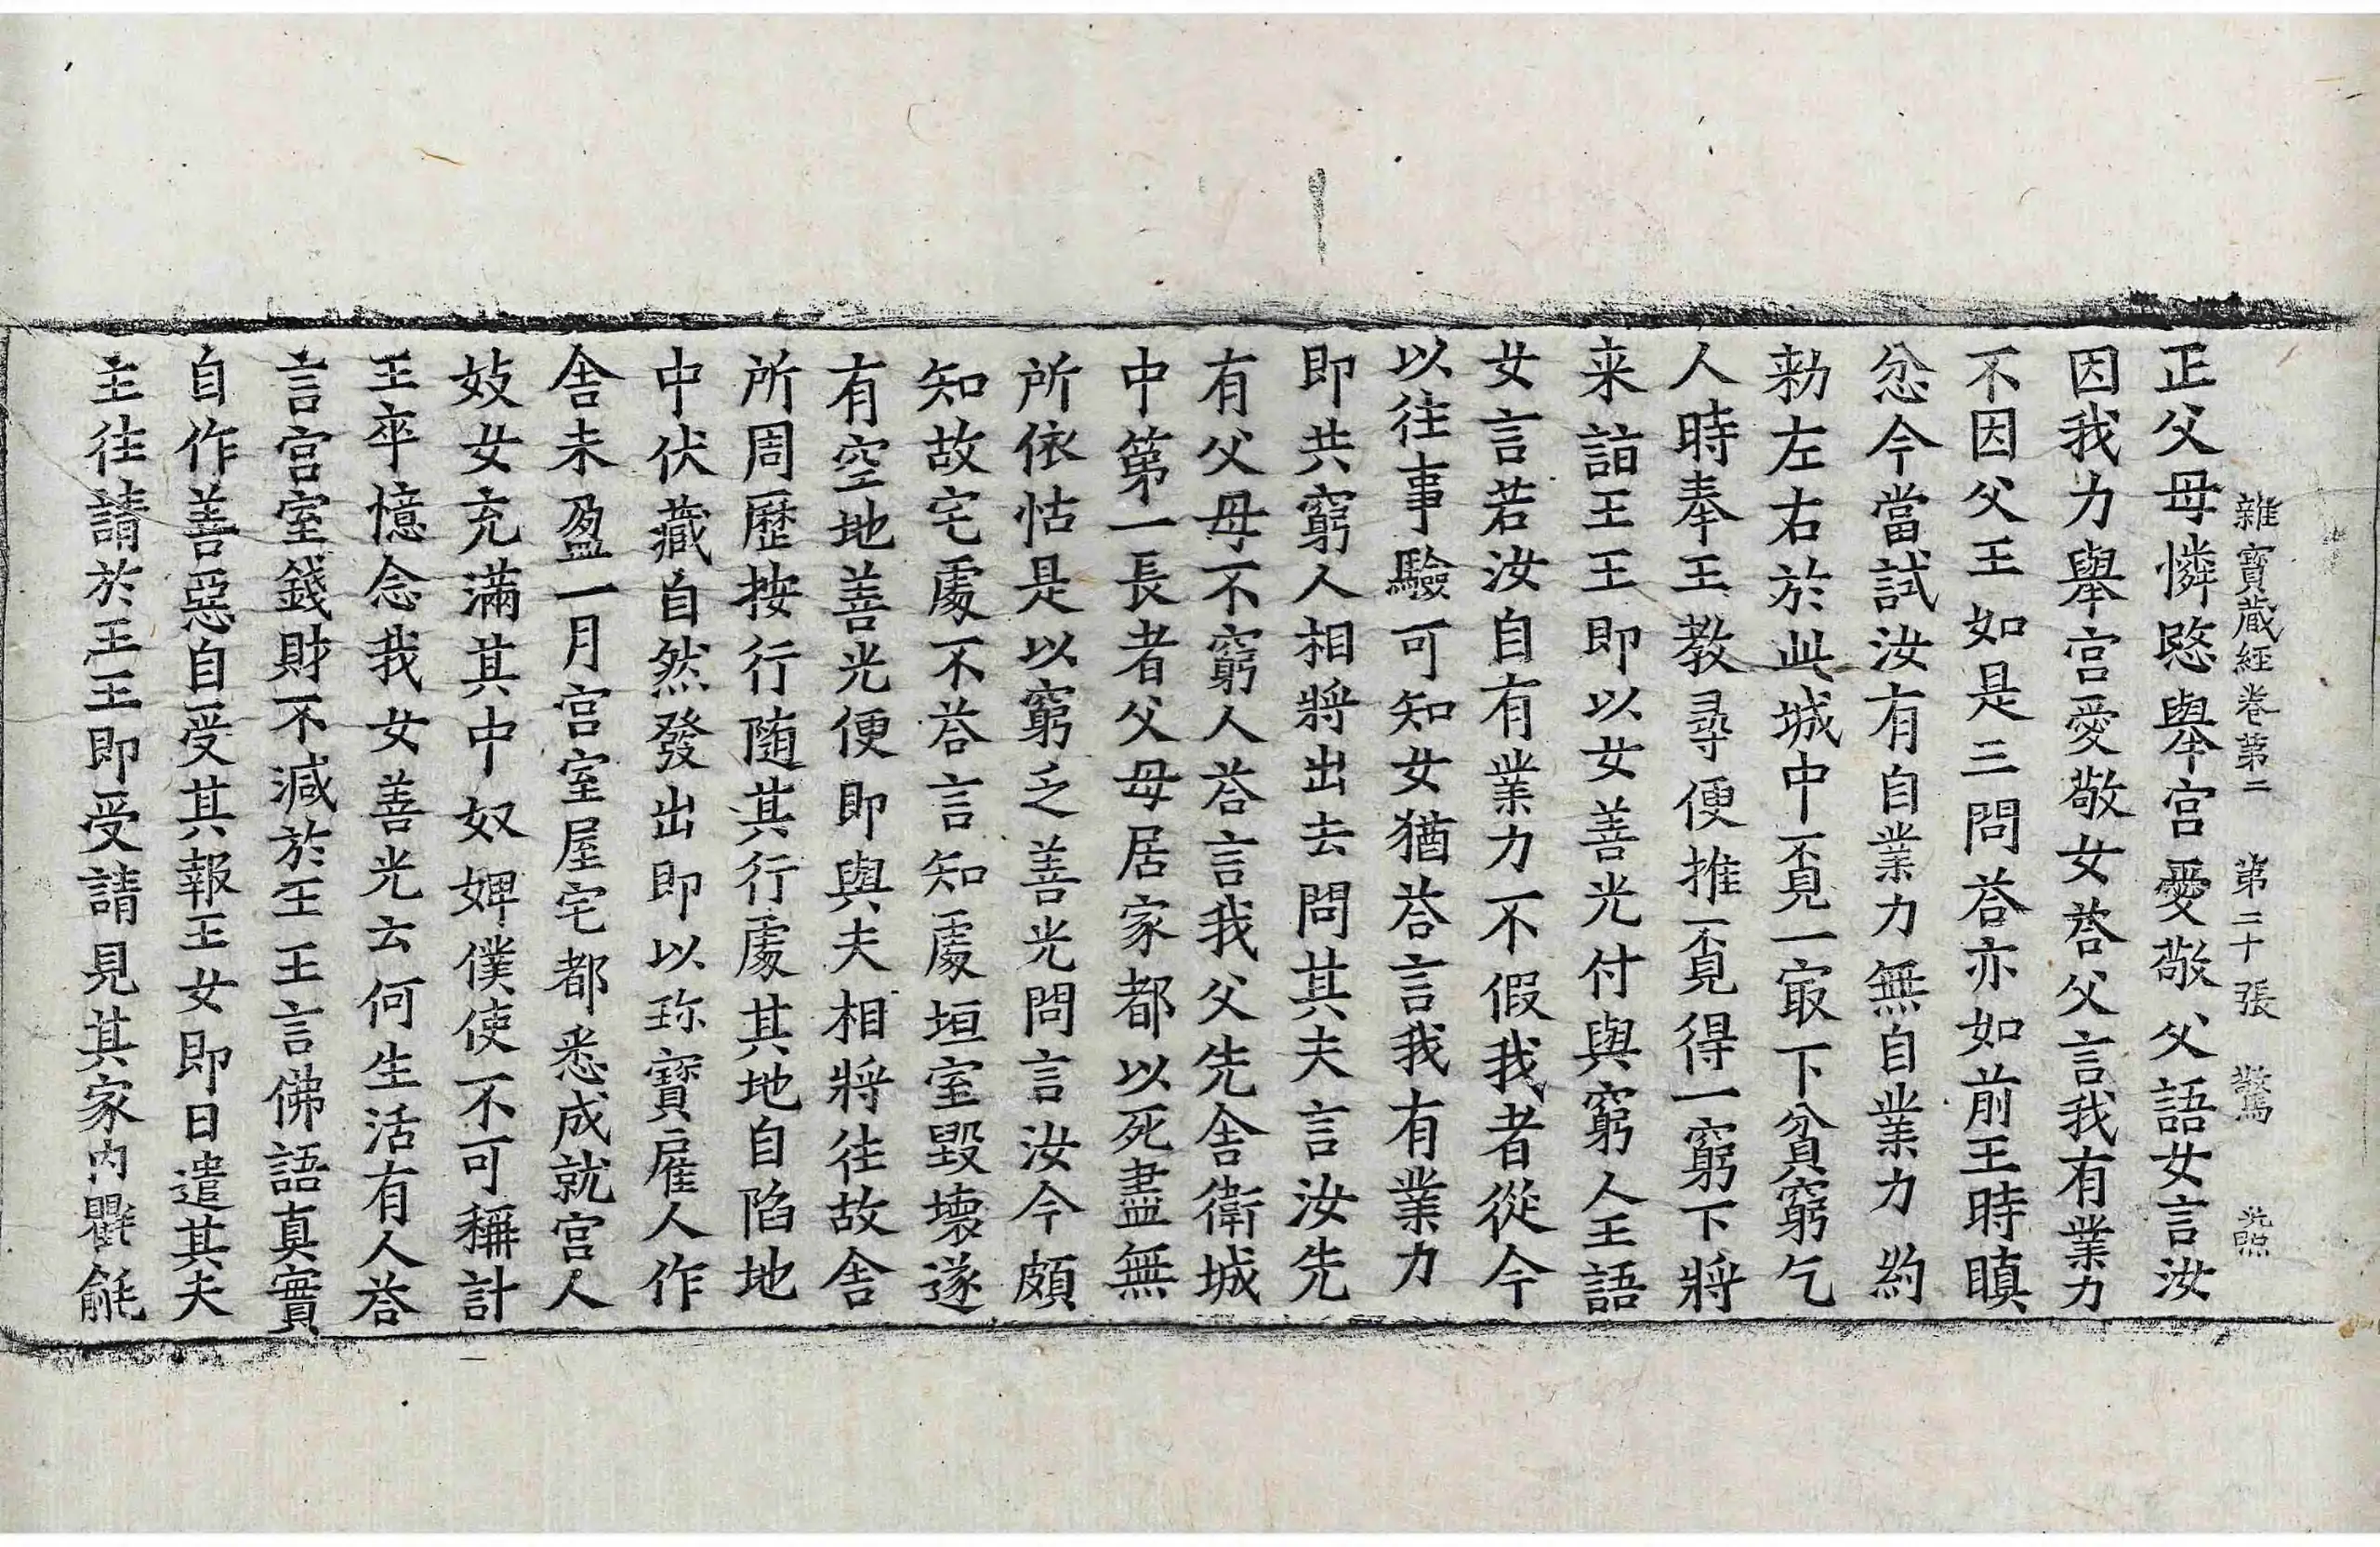 雜寶蔵經卷第二　第二十張　驚　光照
正父母憐愍舉宫愛敬父語女言汝
因我力舉宫愛敬女荅父言我有業力
不因父王如是三問荅亦如前王時瞋
忿今當試汝有自業力無自業力約
勑左右於此城中覔一冣下貧窮乞
人時奉王教尋便推覔得一窮下將
来詣王王即以女善光付與窮人王語
女言若汝自有業力不假我者從今
以往事驗可知女猶荅言我有業力
即共窮人相將出去問其夫言汝先
有父母不窮人荅言我父先舍衛城
中第一長者父母居家都以死盡無
所依怙是以窮乏善光問言汝今頗
知故宅處不荅言知處垣室毀壞遂
有空地善光便即與夫相將往故舍
所周歷按行随其行處其地自陷地
中伏藏自然發出即以珎寶雇人作
舍未盈一月宫室屋宅都悉成就宫人
妓女充滿其中奴婢僕使不可稱計
王卒憶念我女善光云何生活有人荅
言宫室錢財不減於王王言佛語真實
自作善惡自受其報王女即日遣其夫
主往請於王王即受請見其家内氍毹